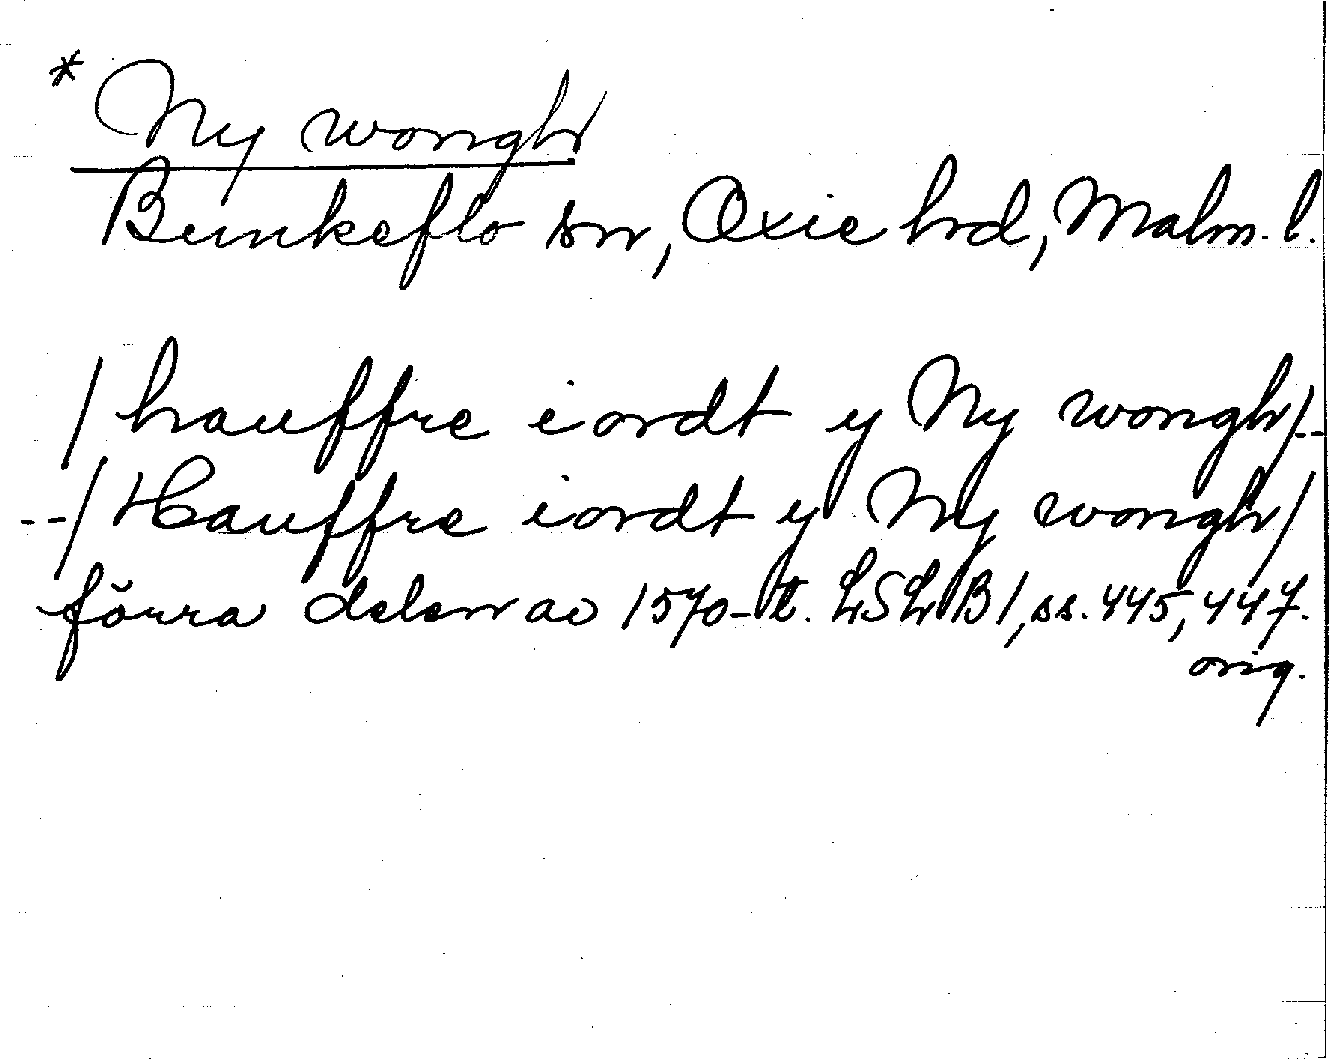 * Ny wongh
Bunkeflo sn, Oxie hrd, Malm. l.
/hauffre iordt y Ny wongh/--
--/Hauffre iordt y Ny wongh/
förra delen av 1570-t. LSLB1, ss. 445, 447.
orig.